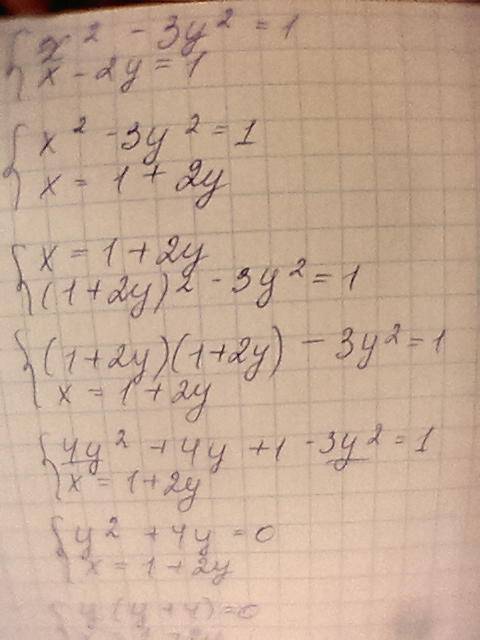 x² - 3y² = 1
x - 2y = 1
x² - 3y² = 1
x = 1 + 2y
x = 1 + 2y
(1 + 2y)2 - 3y² = 1
(1 + 2y)(1 + 2y) - 3y² = 1
x = 1 + 2y
4y² + 4y + 1 - 3y² = 1
x = 1 + 2y
y² + 4y = 0
x = 1 + 2y
y(y + 4) = 0